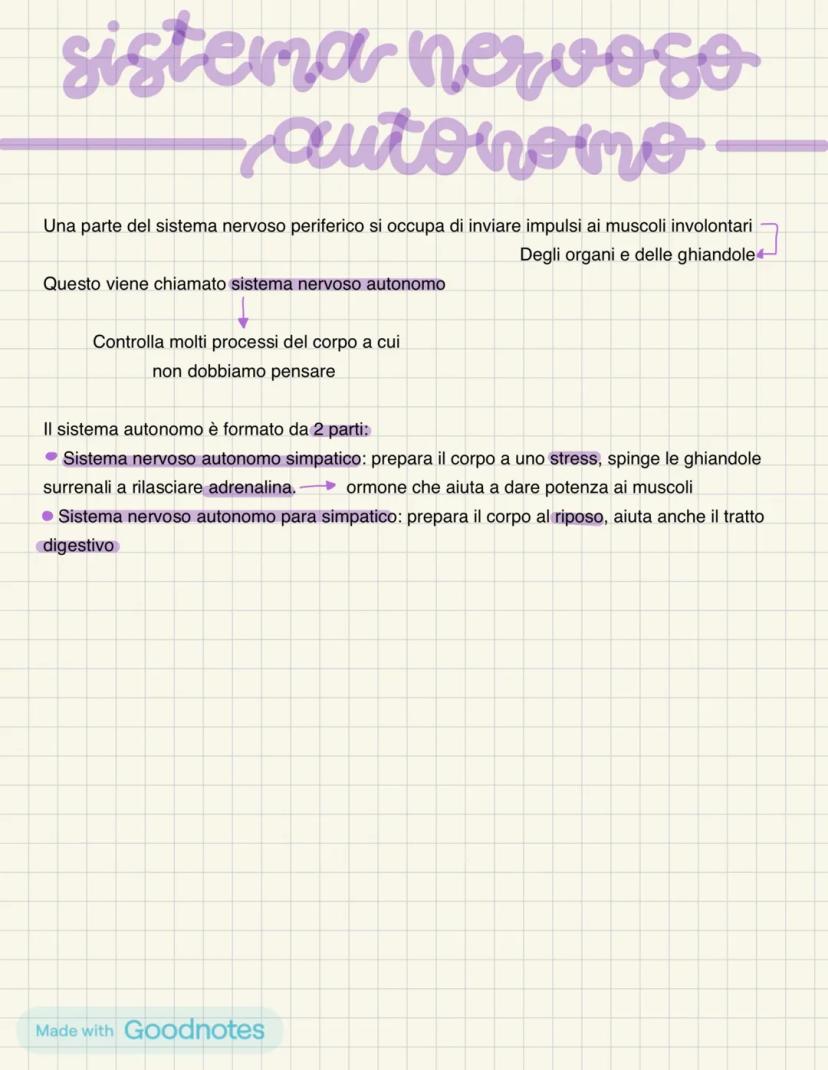 sistema nervoso
autonomo
Una parte del sistema nervoso periferico si occupa di inviare impulsi ai muscoli involontari
Degli organi e delle ghiandole
Questo viene chiamato sistema nervoso autonomo
Controlla molti processi del corpo a cui
non dobbiamo pensare
Il sistema autonomo è formato da 2 parti:
Sistema nervoso autonomo simpatico: prepara il corpo a uno stress, spinge le ghiandole
surrenali a rilasciare adrenalina. ormone che aiuta a dare potenza ai muscoli
Sistema nervoso autonomo para simpatico: prepara il corpo al riposo, aiuta anche il tratto
digestivo
Made with Goodnotes